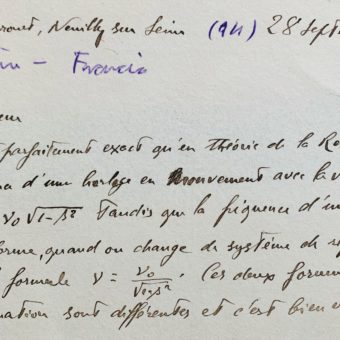 rronet, Neuilly sur Seine (911) 28 Sept
Francia
eur
parfaitement exact qu'en théorie de la Re
d'une horloge en mouvement avec la v
ν₀ √1-β² Tandis que la fréquence d'un
forme, quand on change de système de ré
formule ν = ν₀/√1-β². Ces deux formu
mation sont différentes et c'est bien e